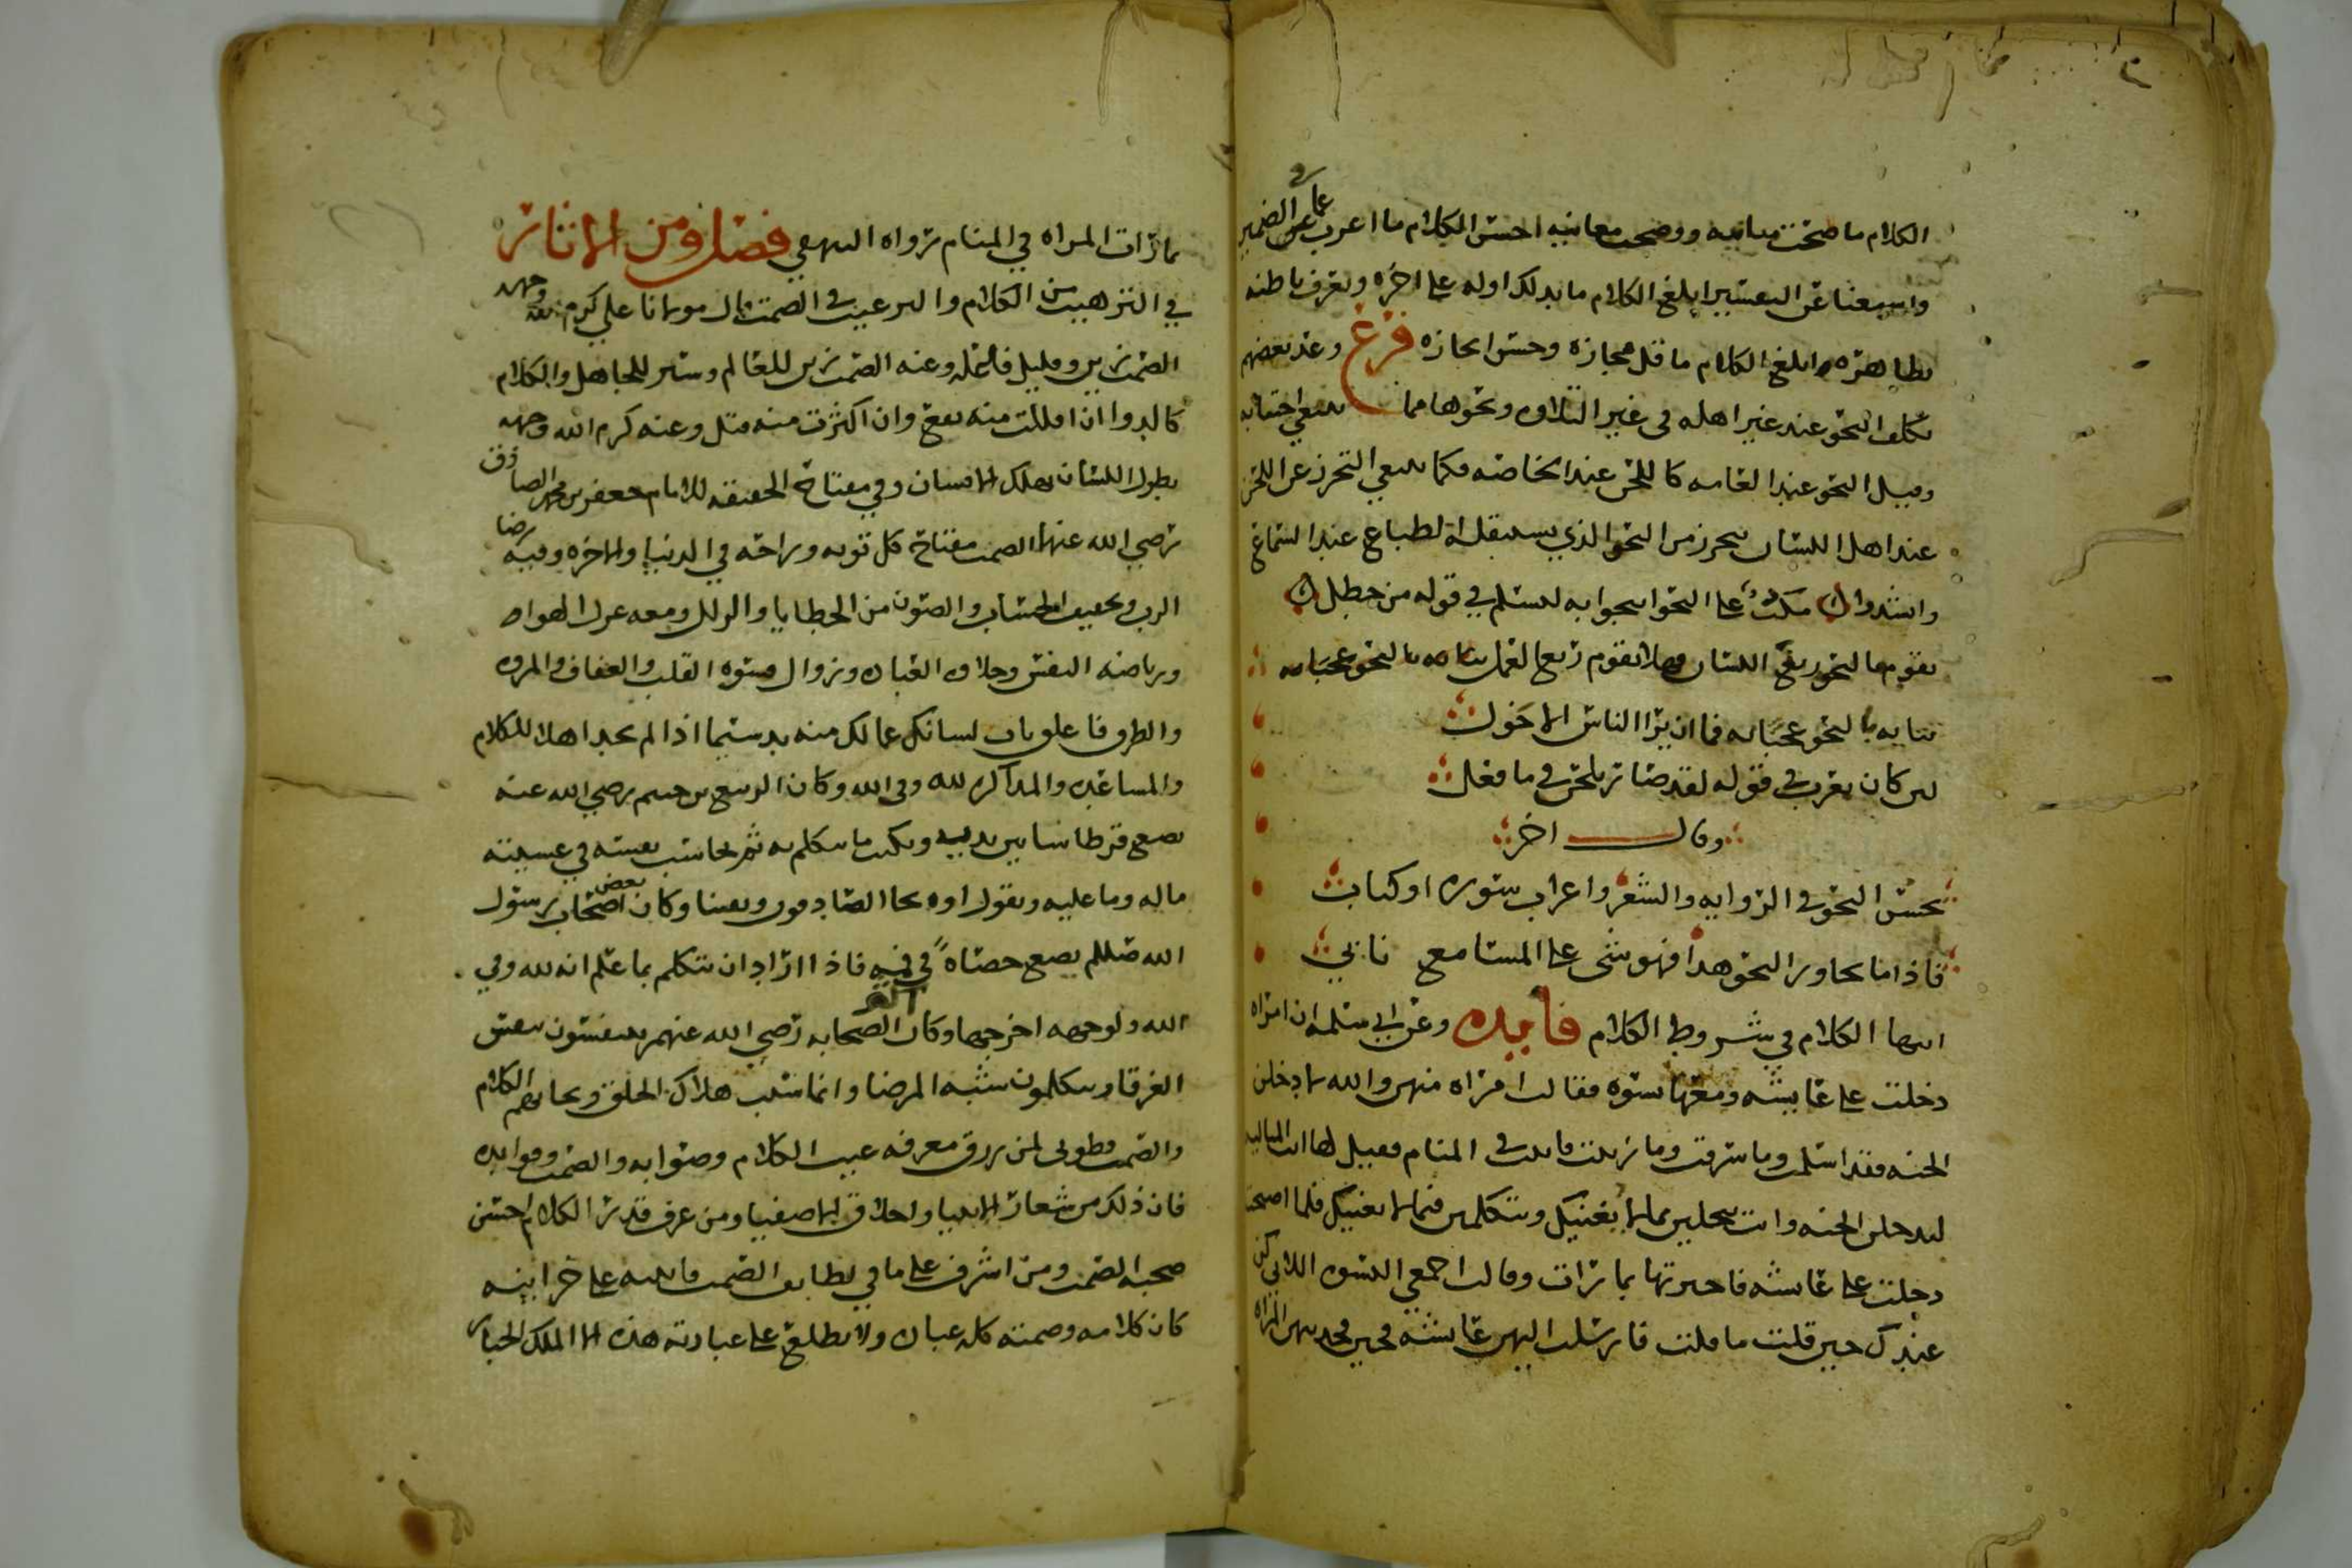 الكلام ما صحت مبانيه ووضحت معانيه احسن الكلام ما اعرب عما في الضمير
واستغنا عن التفسير ابلغ الكلام ما يدلك اوله على اخره ويعرف باطنه
بظاهره وابلغ الكلام ما قل مجازه وحسن ايجازه فرع وعند بعضهم
تكلف النحو عند غير اهله في غير التلاوه ونحوها مما ينبغي اجتنابه
وقيل النحو عند العامه كاللحن عند الخاصه فكما ينبغي التحرز عن اللحن
عند اهل اللسان يتحرز من النحو الذي يستثقله الطباع عند السماع
وانشدوا على النحو في قوله من خطل
بالنحو اللسان وهلا يقوم زيغ العمل بالنحو
بالنحو فما ان يرا الناس الا خول
لين كان يعرب في قوله لقد صار يلحن في ما فعل
وقال اخر
يحسن النحو في الروايه والشعر واعراب سوره او كتاب
فاذا ما تجاوز النحو هذا فهو شى على المسامع نابي
انتها الكلام في شروط الكلام فايده وعن ابي سلمه ان امراه
دخلت على عايشه ومعها نسوه فقالت امراه منهن والله لا دخلن
الجنه فقد اسلمت وما سرقت وما زنيت فاتيت في المنام فقيل لها انت المتاليه
لتدخلن الجنه وانت تبخلين بما لا يغنيك وتتكلمين فيما لا يعنيك فلما اصبحت
دخلت على عايشه فاخبرتها بما رات وقالت اجمعي النسوه اللاتي كن
عندك حين قلت ما قلت فارسلت اليهن عايشه فجين فحدثتهن المراه
بما رات المراه في المنام رواه البيهقي فصل ومن الاثار
في الترهيب من الكلام والترغيب في الصمت قال مولانا علي كرم الله وجهه
الصمت زين وقليل فاعله وعنه الصمت زين للعالم وستر للجاهل والكلام
كالدوا ان اقللت منه نفع وان اكثرت منه قتل وعنه كرم الله وجهه
بطول اللسان يهلك الانسان وفي مفتاح الحقيقه للامام جعفر بن محمد الصادق
رضي الله عنهما الصمت مفتاح كل توبه وراحه في الدنيا والاخره وفيه رضا
الرب وتخفيف الحساب والصون من الخطايا والزلل ومعه عزل الهوا
ورياضه النفس وحلاوه العباده وزوال قسوه القلب والعفاف والمروه
والظرف فاغلق باب لسانك عما لك منه بد سيما اذا لم تجد اهلا للكلام
والمساعده والمذاكره لله وفي الله وكان الربيع بن خيثم رضي الله عنه
يضع قرطاسا بين يديه ويكتب ما يتكلم به ثم يحاسب نفسه في عشيته
ماله وما عليه ويقول اوه نجا الصادقون وبقينا وكان بعض اصحاب رسول
الله صللم يضع حصاه في فيه فاذا اراد ان يتكلم بما علم انه لله وفي
الله ولوجهه اخرجها وكان الصحابه رضي الله عنهم يتنفسون تنفس
الغرقا ويتكلمون شبه المرضا وانما سبب هلاك الخلق ونجاتهم الكلام
والصمت فطوبى لمن رزق معرفه عيب الكلام وصوابه والصمت وفوايده
فان ذلك من شعار الانبيا واخلاق الاصفيا ومن عرف قدر الكلام احسن
صحبه الصمت ومن اشرف على ما في لطايف الصمت على خزاينه
كان كلامه وصمته كله عباده ولا يطلع على عبادته هذه الا الملك الجبار